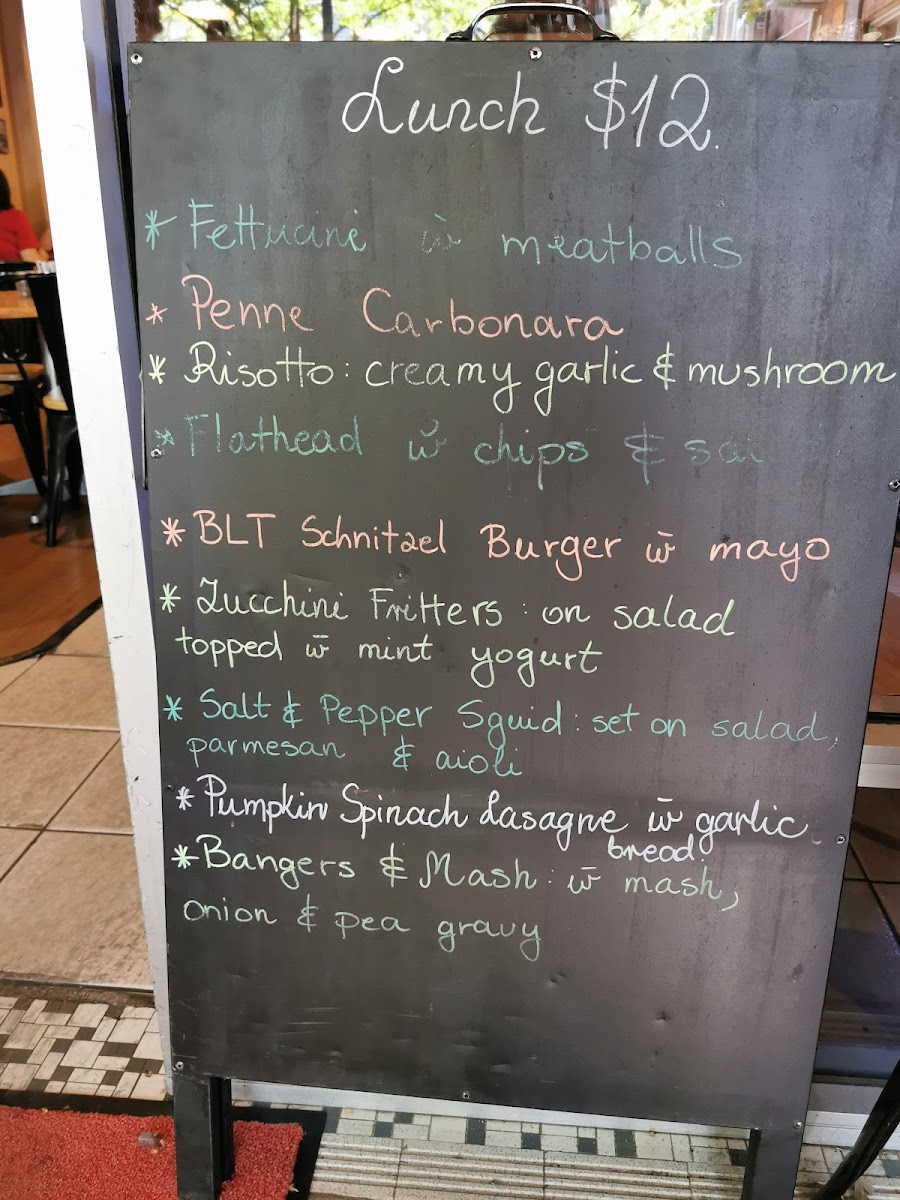 Lunch $12.
* Fettucini w̄ meatballs
* Penne Carbonara
* Risotto: creamy garlic & mushroom
* Flathead w̄ chips &
* BLT Schnitzel Burger w̄ mayo
* Zucchini Fritters: on salad
topped w̄ mint yogurt
* Salt & Pepper Squid: set on salad,
parmesan & aioli
* Pumpkin Spinach Lasagne w̄ garlic
bread.
* Bangers & Mash: w̄ mash,
onion & pea gravy